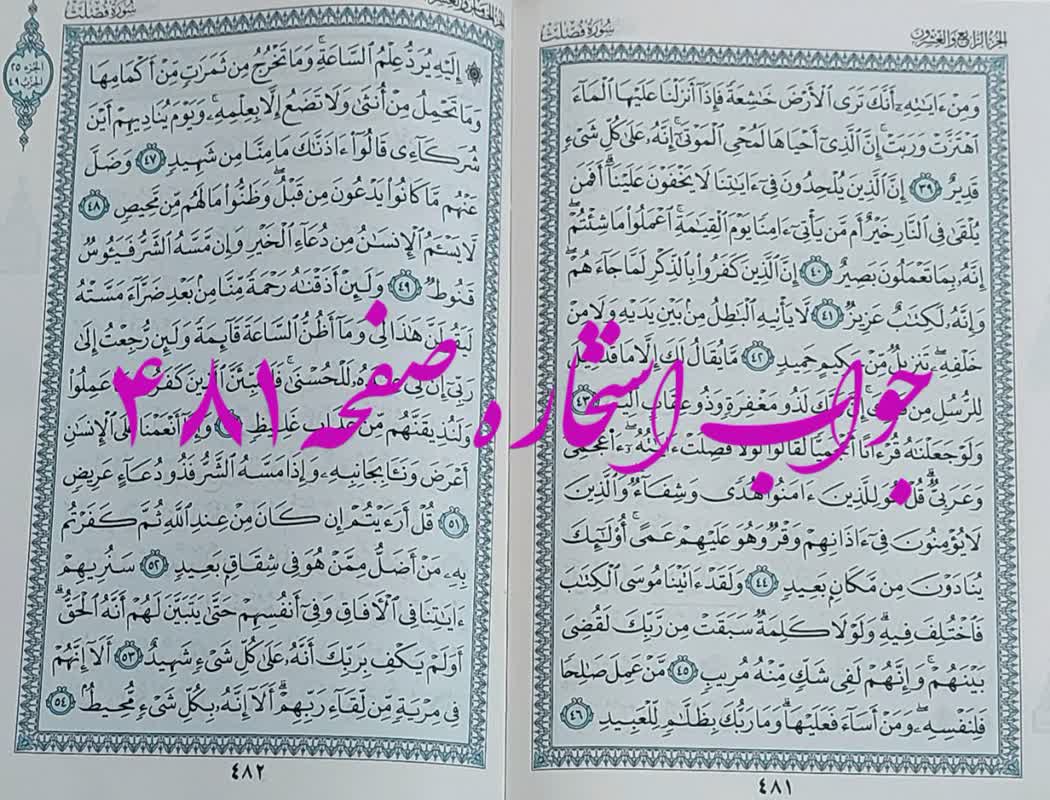 الجزء الرابع والعشرون
سورة فصلت
وَمِنْ ءَايَٰتِهِۦٓ أَنَّكَ تَرَى ٱلْأَرْضَ خَٰشِعَةً فَإِذَآ أَنزَلْنَا عَلَيْهَا ٱلْمَآءَ
ٱهْتَزَّتْ وَرَبَتْ ۚ إِنَّ ٱلَّذِىٓ أَحْيَاهَا لَمُحْىِ ٱلْمَوْتَىٰٓ ۚ إِنَّهُۥ عَلَىٰ كُلِّ شَىْءٍ
قَدِيرٌ ٣٩ إِنَّ ٱلَّذِينَ يُلْحِدُونَ فِىٓ ءَايَٰتِنَا لَا يَخْفَوْنَ عَلَيْنَآ ۗ أَفَمَن
يُلْقَىٰ فِى ٱلنَّارِ خَيْرٌ أَم مَّن يَأْتِىٓ ءَامِنًا يَوْمَ ٱلْقِيَٰمَةِ ۚ ٱعْمَلُوا۟ مَا شِئْتُمْ ۖ
إِنَّهُۥ بِمَا تَعْمَلُونَ بَصِيرٌ ٤٠ إِنَّ ٱلَّذِينَ كَفَرُوا۟ بِٱلذِّكْرِ لَمَّا جَآءَهُمْ ۖ
وَإِنَّهُۥ لَكِتَٰبٌ عَزِيزٌ ٤١ لَّا يَأْتِيهِ ٱلْبَٰطِلُ مِنۢ بَيْنِ يَدَيْهِ وَلَا مِنْ
خَلْفِهِۦ ۖ تَنزِيلٌ مِّنْ حَكِيمٍ حَمِيدٍ ٤٢ مَّا يُقَالُ لَكَ إِلَّا مَا قَدْ قِيلَ
لِلرُّسُلِ مِن قَبْلِكَ ۚ إِنَّ رَبَّكَ لَذُو مَغْفِرَةٍ وَذُو عِقَابٍ أَلِيمٍ ٤٣
وَلَوْ جَعَلْنَٰهُ قُرْءَانًا أَعْجَمِيًّا لَّقَالُوا۟ لَوْلَا فُصِّلَتْ ءَايَٰتُهُۥٓ ۖ ءَا۬عْجَمِىٌّ
وَعَرَبِىٌّ ۗ قُلْ هُوَ لِلَّذِينَ ءَامَنُوا۟ هُدًى وَشِفَآءٌ ۖ وَٱلَّذِينَ
لَا يُؤْمِنُونَ فِىٓ ءَاذَانِهِمْ وَقْرٌ وَهُوَ عَلَيْهِمْ عَمًى ۚ أُو۟لَٰٓئِكَ
يُنَادَوْنَ مِن مَّكَانٍۭ بَعِيدٍ ٤٤ وَلَقَدْ ءَاتَيْنَا مُوسَى ٱلْكِتَٰبَ
فَٱخْتُلِفَ فِيهِ ۗ وَلَوْلَا كَلِمَةٌ سَبَقَتْ مِن رَّبِّكَ لَقُضِىَ
بَيْنَهُمْ ۚ وَإِنَّهُمْ لَفِى شَكٍّ مِّنْهُ مُرِيبٍ ٤٥ مَّنْ عَمِلَ صَٰلِحًا
فَلِنَفْسِهِۦ ۖ وَمَنْ أَسَآءَ فَعَلَيْهَا ۗ وَمَا رَبُّكَ بِظَلَّٰمٍ لِّلْعَبِيدِ ٤٦
٤٨١
سورة فصلت
الجزء ٢٥
الحزب ٤٩
إِلَيْهِ يُرَدُّ عِلْمُ ٱلسَّاعَةِ ۚ وَمَا تَخْرُجُ مِن ثَمَرَٰتٍ مِّنْ أَكْمَامِهَا
وَمَا تَحْمِلُ مِنْ أُنثَىٰ وَلَا تَضَعُ إِلَّا بِعِلْمِهِۦ ۚ وَيَوْمَ يُنَادِيهِمْ أَيْنَ
شُرَكَآءِى قَالُوٓا۟ ءَاذَنَّٰكَ مَا مِنَّا مِن شَهِيدٍ ٤٧ وَضَلَّ
عَنْهُم مَّا كَانُوا۟ يَدْعُونَ مِن قَبْلُ ۖ وَظَنُّوا۟ مَا لَهُم مِّن مَّحِيصٍ ٤٨
لَّا يَسْـَٔمُ ٱلْإِنسَٰنُ مِن دُعَآءِ ٱلْخَيْرِ وَإِن مَّسَّهُ ٱلشَّرُّ فَيَـُٔوسٌ
قَنُوطٌ ٤٩ وَلَئِنْ أَذَقْنَٰهُ رَحْمَةً مِّنَّا مِنۢ بَعْدِ ضَرَّآءَ مَسَّتْهُ
لَيَقُولَنَّ هَٰذَا لِى وَمَآ أَظُنُّ ٱلسَّاعَةَ قَآئِمَةً وَلَئِن رُّجِعْتُ إِلَىٰ
رَبِّىٓ إِنَّ لِى عِندَهُۥ لَلْحُسْنَىٰ ۚ فَلَنُنَبِّئَنَّ ٱلَّذِينَ كَفَرُوا۟ بِمَا عَمِلُوا۟
وَلَنُذِيقَنَّهُم مِّنْ عَذَابٍ غَلِيظٍ ٥٠ وَإِذَآ أَنْعَمْنَا عَلَى ٱلْإِنسَٰنِ
أَعْرَضَ وَنَـَٔا بِجَانِبِهِۦ وَإِذَا مَسَّهُ ٱلشَّرُّ فَذُو دُعَآءٍ عَرِيضٍ
٥١ قُلْ أَرَءَيْتُمْ إِن كَانَ مِنْ عِندِ ٱللَّهِ ثُمَّ كَفَرْتُم
بِهِۦ مَنْ أَضَلُّ مِمَّنْ هُوَ فِى شِقَاقٍۭ بَعِيدٍ ٥٢ سَنُرِيهِمْ
ءَايَٰتِنَا فِى ٱلْءَافَاقِ وَفِىٓ أَنفُسِهِمْ حَتَّىٰ يَتَبَيَّنَ لَهُمْ أَنَّهُ ٱلْحَقُّ ۗ
أَوَلَمْ يَكْفِ بِرَبِّكَ أَنَّهُۥ عَلَىٰ كُلِّ شَىْءٍ شَهِيدٌ ٥٣ أَلَآ إِنَّهُمْ
فِى مِرْيَةٍ مِّن لِّقَآءِ رَبِّهِمْ ۗ أَلَآ إِنَّهُۥ بِكُلِّ شَىْءٍ مُّحِيطٌۢ ٥٤
٤٨٢
جواب استخاره صفحه ۴۸۱